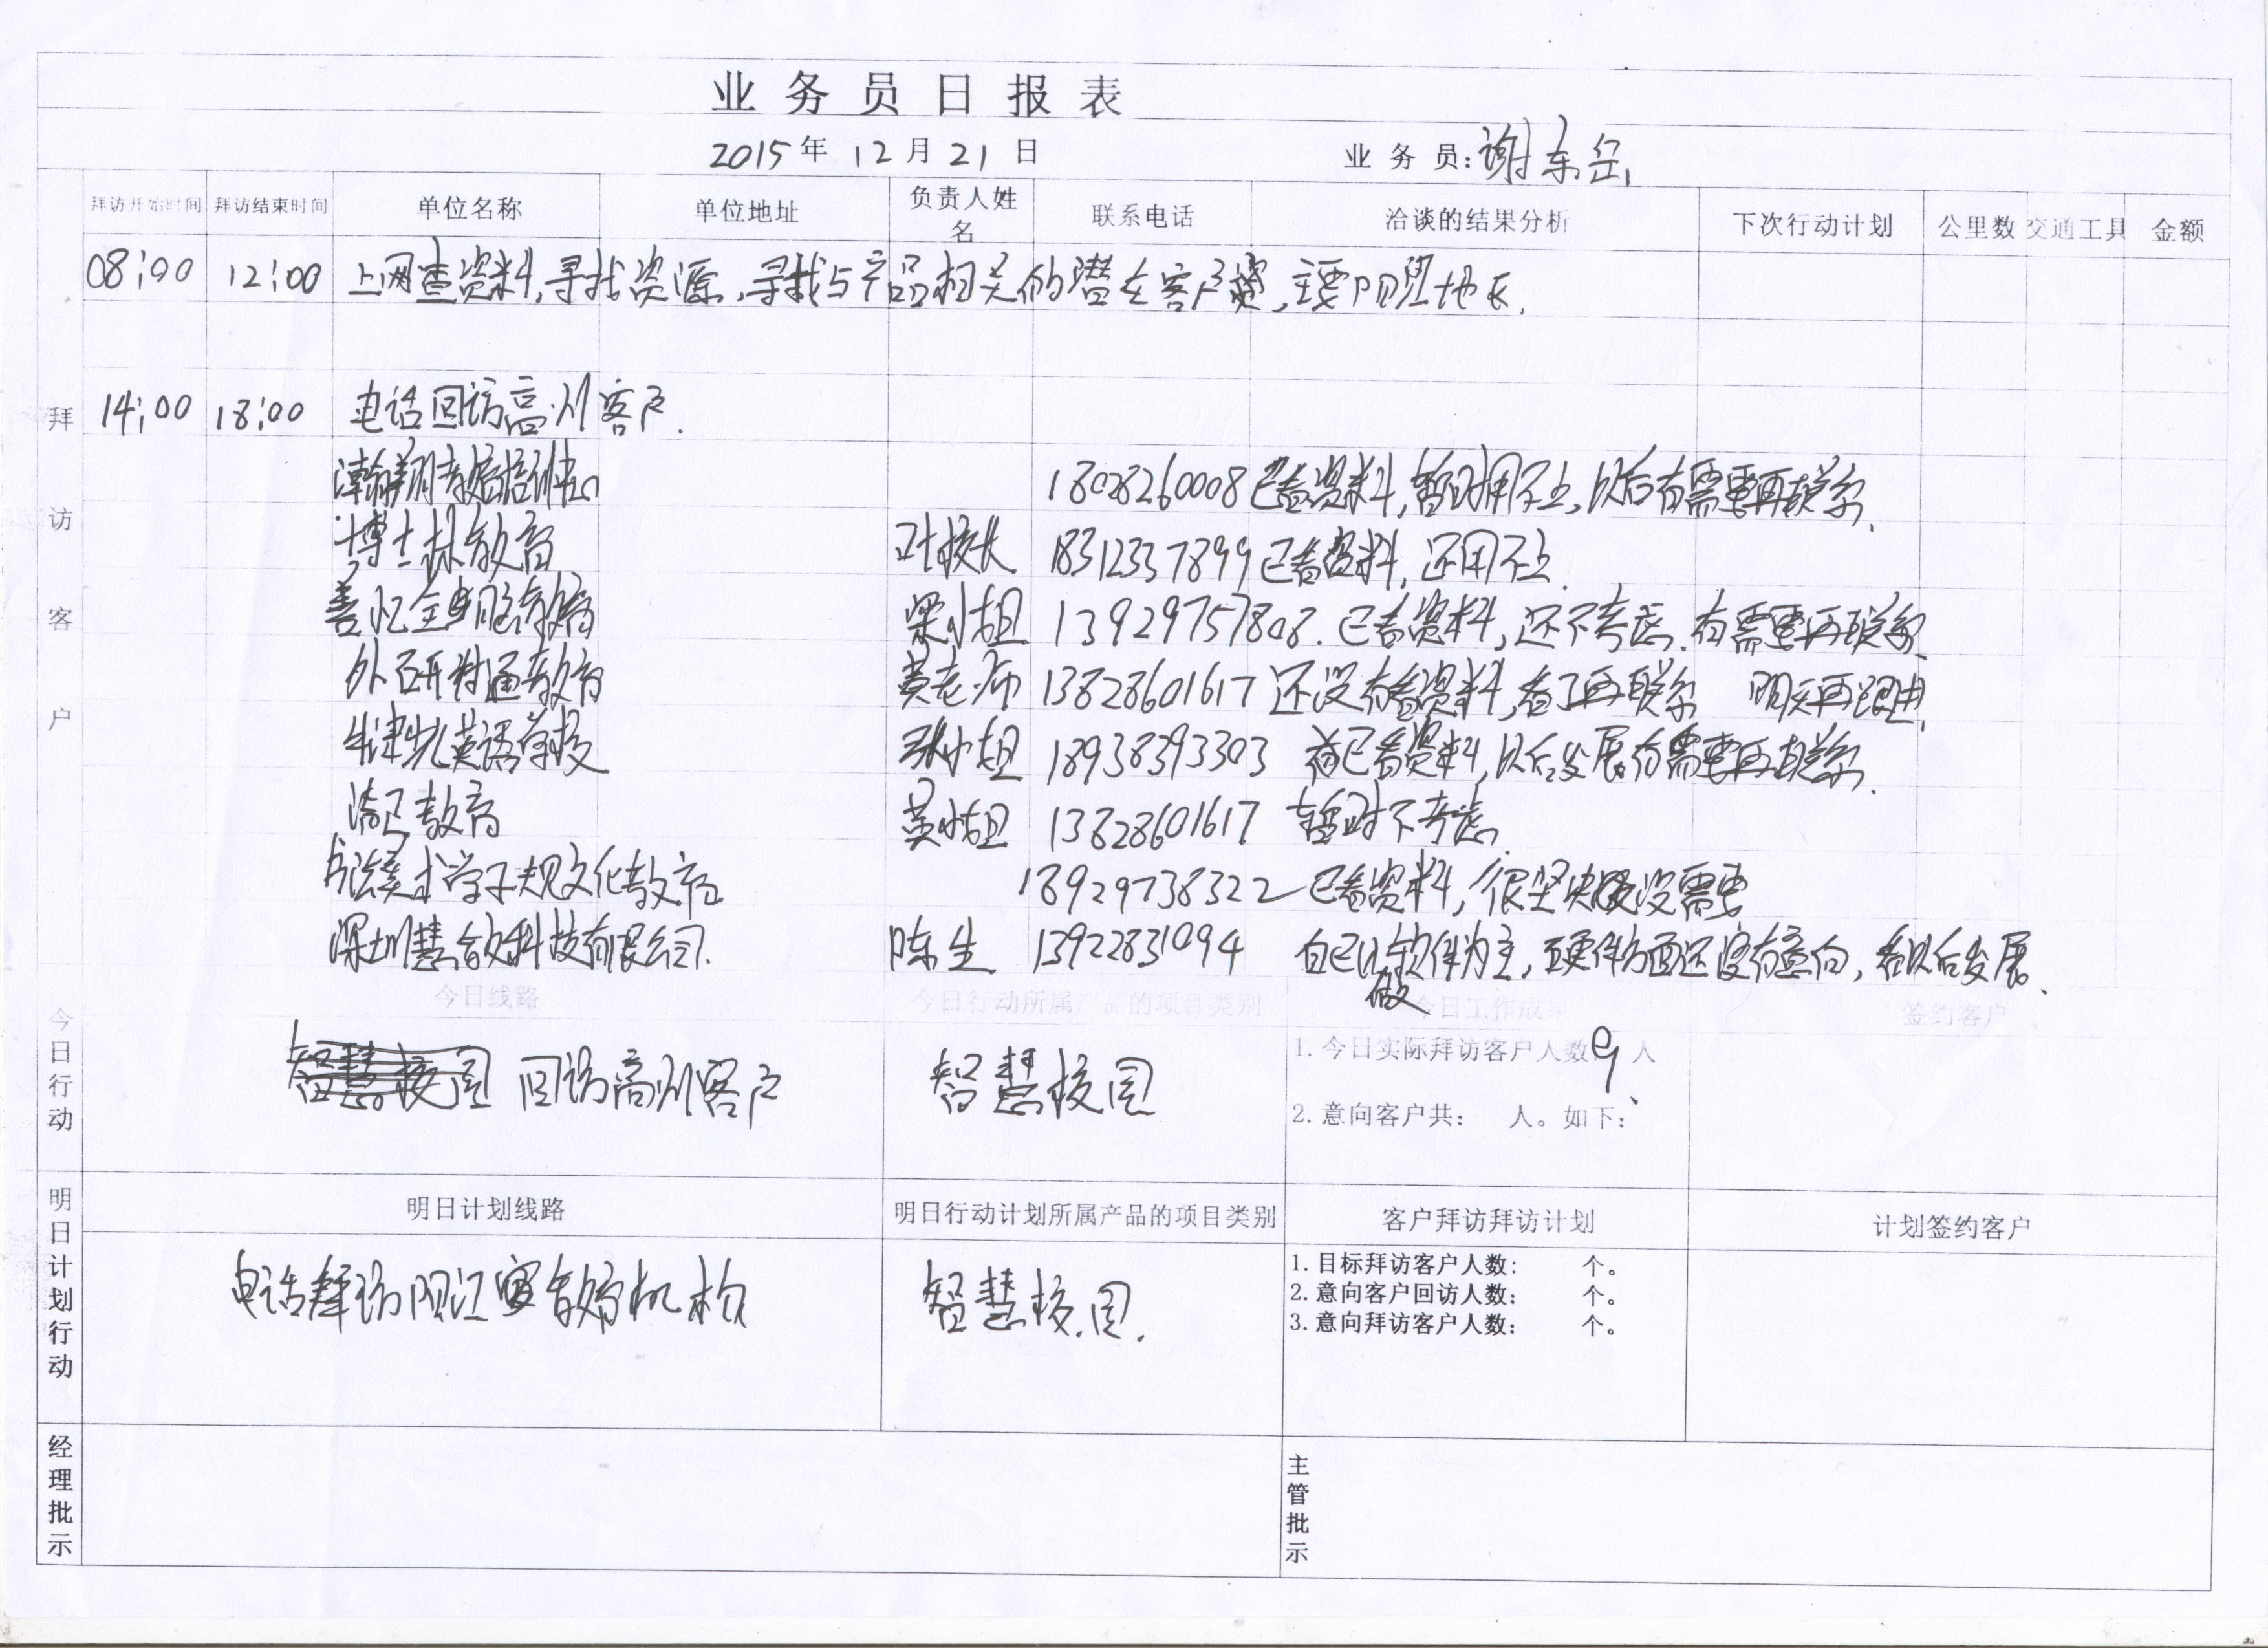 业务员日报表
2015年 12月21日 业务员:谢东岳
拜访开始时间 拜访结束时间 单位名称 单位地址 负责人姓名 联系电话 洽谈的结果分析 下次行动计划 公里数 交通工具 金额
拜访客户
08:00 12:00 上网查资料,寻找资源,寻找与产品相关的潜在客户,主要阳江地区.
14:00 18:00 电话回访高州客户.
瀚翔教育培训中心 18028260008 已看资料,暂时用不上,以后有需要再联系.
博士林教育 叶校长 18312337899 已看资料,还用不上.
善忆全脑教育 梁小姐 13929757808. 已看资料,还不考虑.有需要再联系.
外研村通教育 黄老师 13828601617 还没有看资料,看了再联系 明天再跟进.
牛津少儿英语学校 张小姐 18938393303 已看资料,以后发展有需要再联系.
教育 黄小姐 13828601617 暂时不考虑.
学子规文化教育 18929738322 已看资料,很坚决没需要
深圳慧教科技有限公司. 陈生 13922831094 自己做软件为主,硬件方面还没有意向,看以后发展.
今日行动
今日线路 今日行动所属产品的项目类别 今日工作成果 签约客户
智慧校园 回访高州客户 智慧校园
1.今日实际拜访客户人数 9 人
2.意向客户共: 人。如下:
明日计划行动
明日计划线路 明日行动计划所属产品的项目类别 客户拜访拜访计划 计划签约客户
电话拜访阳江教育机构 智慧校园.
1.目标拜访客户人数: 个。
2.意向客户回访人数: 个。
3.意向拜访客户人数: 个。
经理批示 主管批示